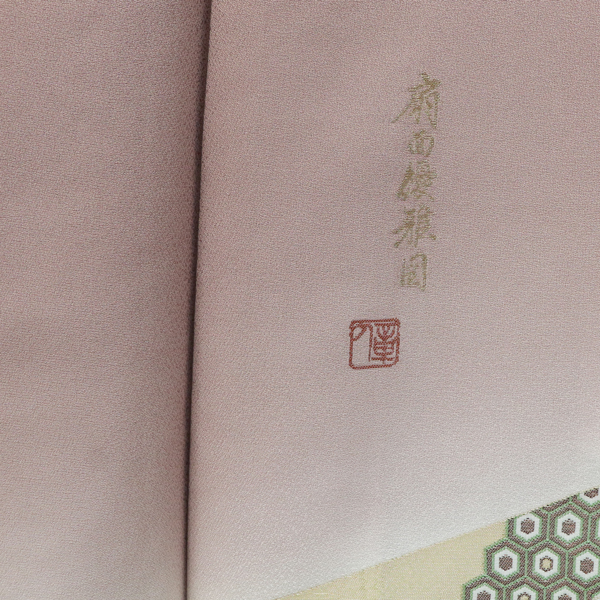 扇面優雅図